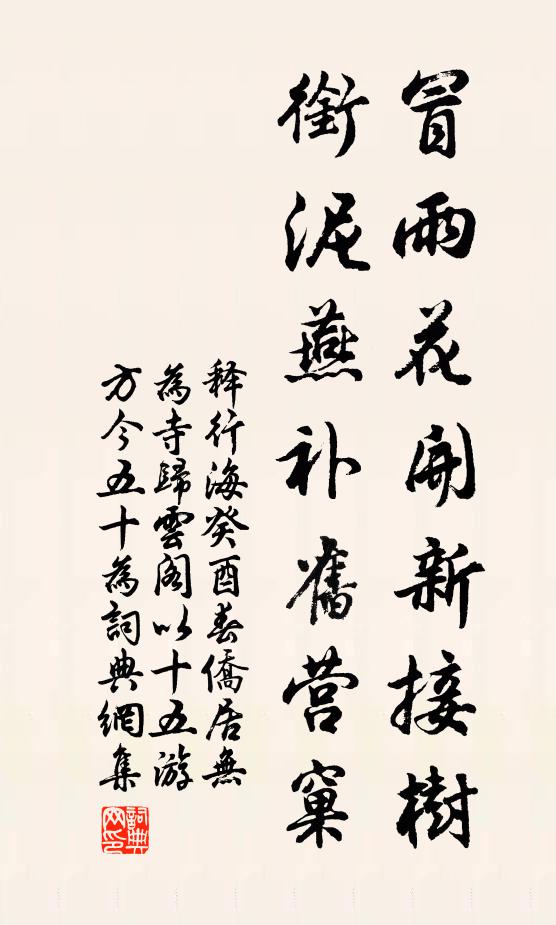 冒雨花開新接樹
銜泥燕补舊营窠
释行海癸酉春僑居無
為寺歸雲閣以十五游
方今五十為詞典網集
詞典
网印